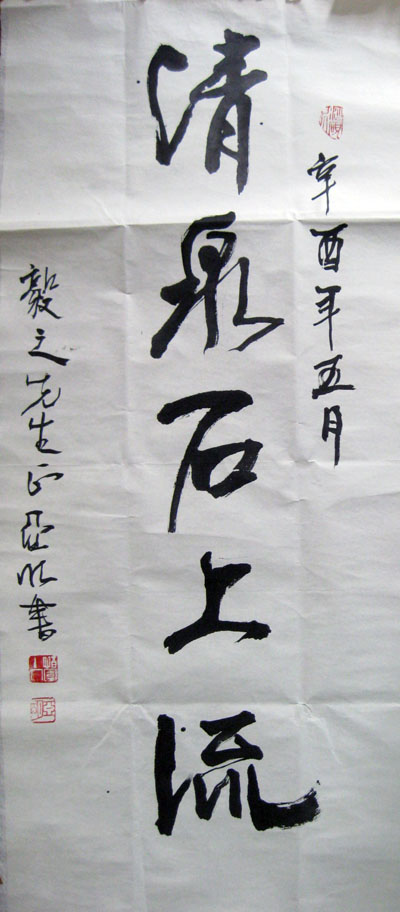 辛酉年五月
清泉石上流
毅之先生正亚明書